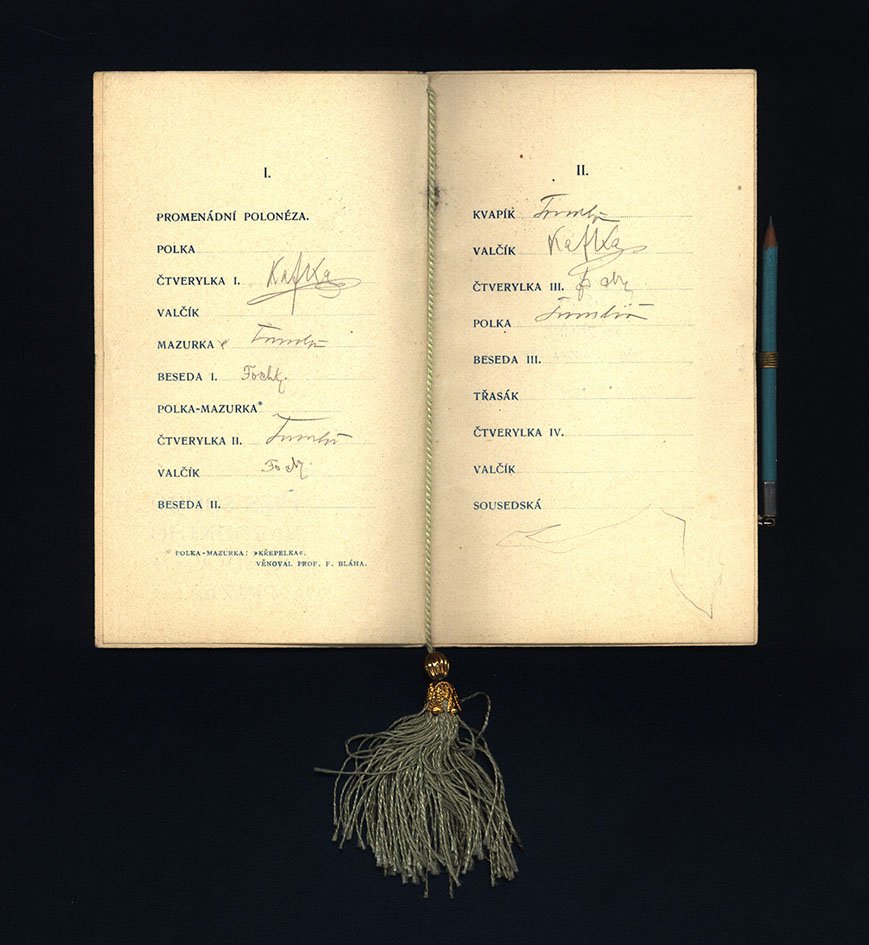 I.
PROMENÁDNÍ POLONÉZA.
POLKA
ČTVERYLKA I. Kafka
VALČÍK
MAZURKA
BESEDA I.
POLKA-MAZURKA*
ČTVERYLKA II.
VALČÍK
BESEDA II.
* POLKA-MAZURKA: »KŘEPELKA«.
VĚNOVAL PROF. F. BLÁHA.
II.
KVAPÍK
VALČÍK Kafka
ČTVERYLKA III.
POLKA
BESEDA III.
TŘASÁK
ČTVERYLKA IV.
VALČÍK
SOUSEDSKÁ